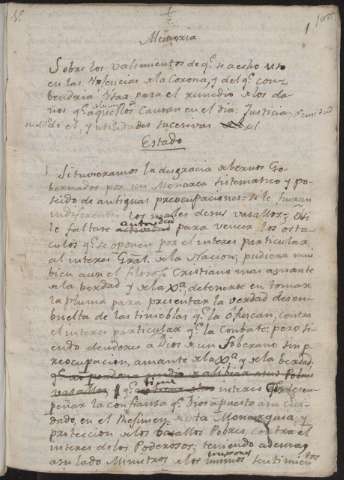 Memoria
Sobre los valimientos de q.e se ha echo uso
en las de la Corona, y del q.e con
bendria usar para el remedio de los da
ños q.e aquellos causan en el dia. Justicia
de el, y utilidades sucesivas
Estado
Si tuvieramos la desgracia de bernos Go
bernados por un Monarca sistematico y po
seido de antiguas preocupaciones: se le hicieran
indiferentes los males de sus vasallos; ó si
le faltase autoridad para vencer los obsta
culos q.e se oponen por el interes particular,
al interes Gral. de la Nacion, pudiera mui
bien aun el Filosofo Cristiano mas amante
de la berdad y de la detenerse en tomar
la pluma para presentar la verdad desen
buelta de las tinieblas q.e la ofuscan, contra
el interes particular q.e la Combate; pero si
endo deudores á Dios de un Soberano sin p
reocupacion, amante de la y de la berdad,
q.e
vasallos q.e tiene interes en desem
peñar la confianza q.e Dios a puesto a su cui
dado, en el de esta Monarquia, y
proteccion de los basallos Pobres, contra el
interes de los Poderosos; teniendo ademas
a su lado Ministros de los mismos sentimientos